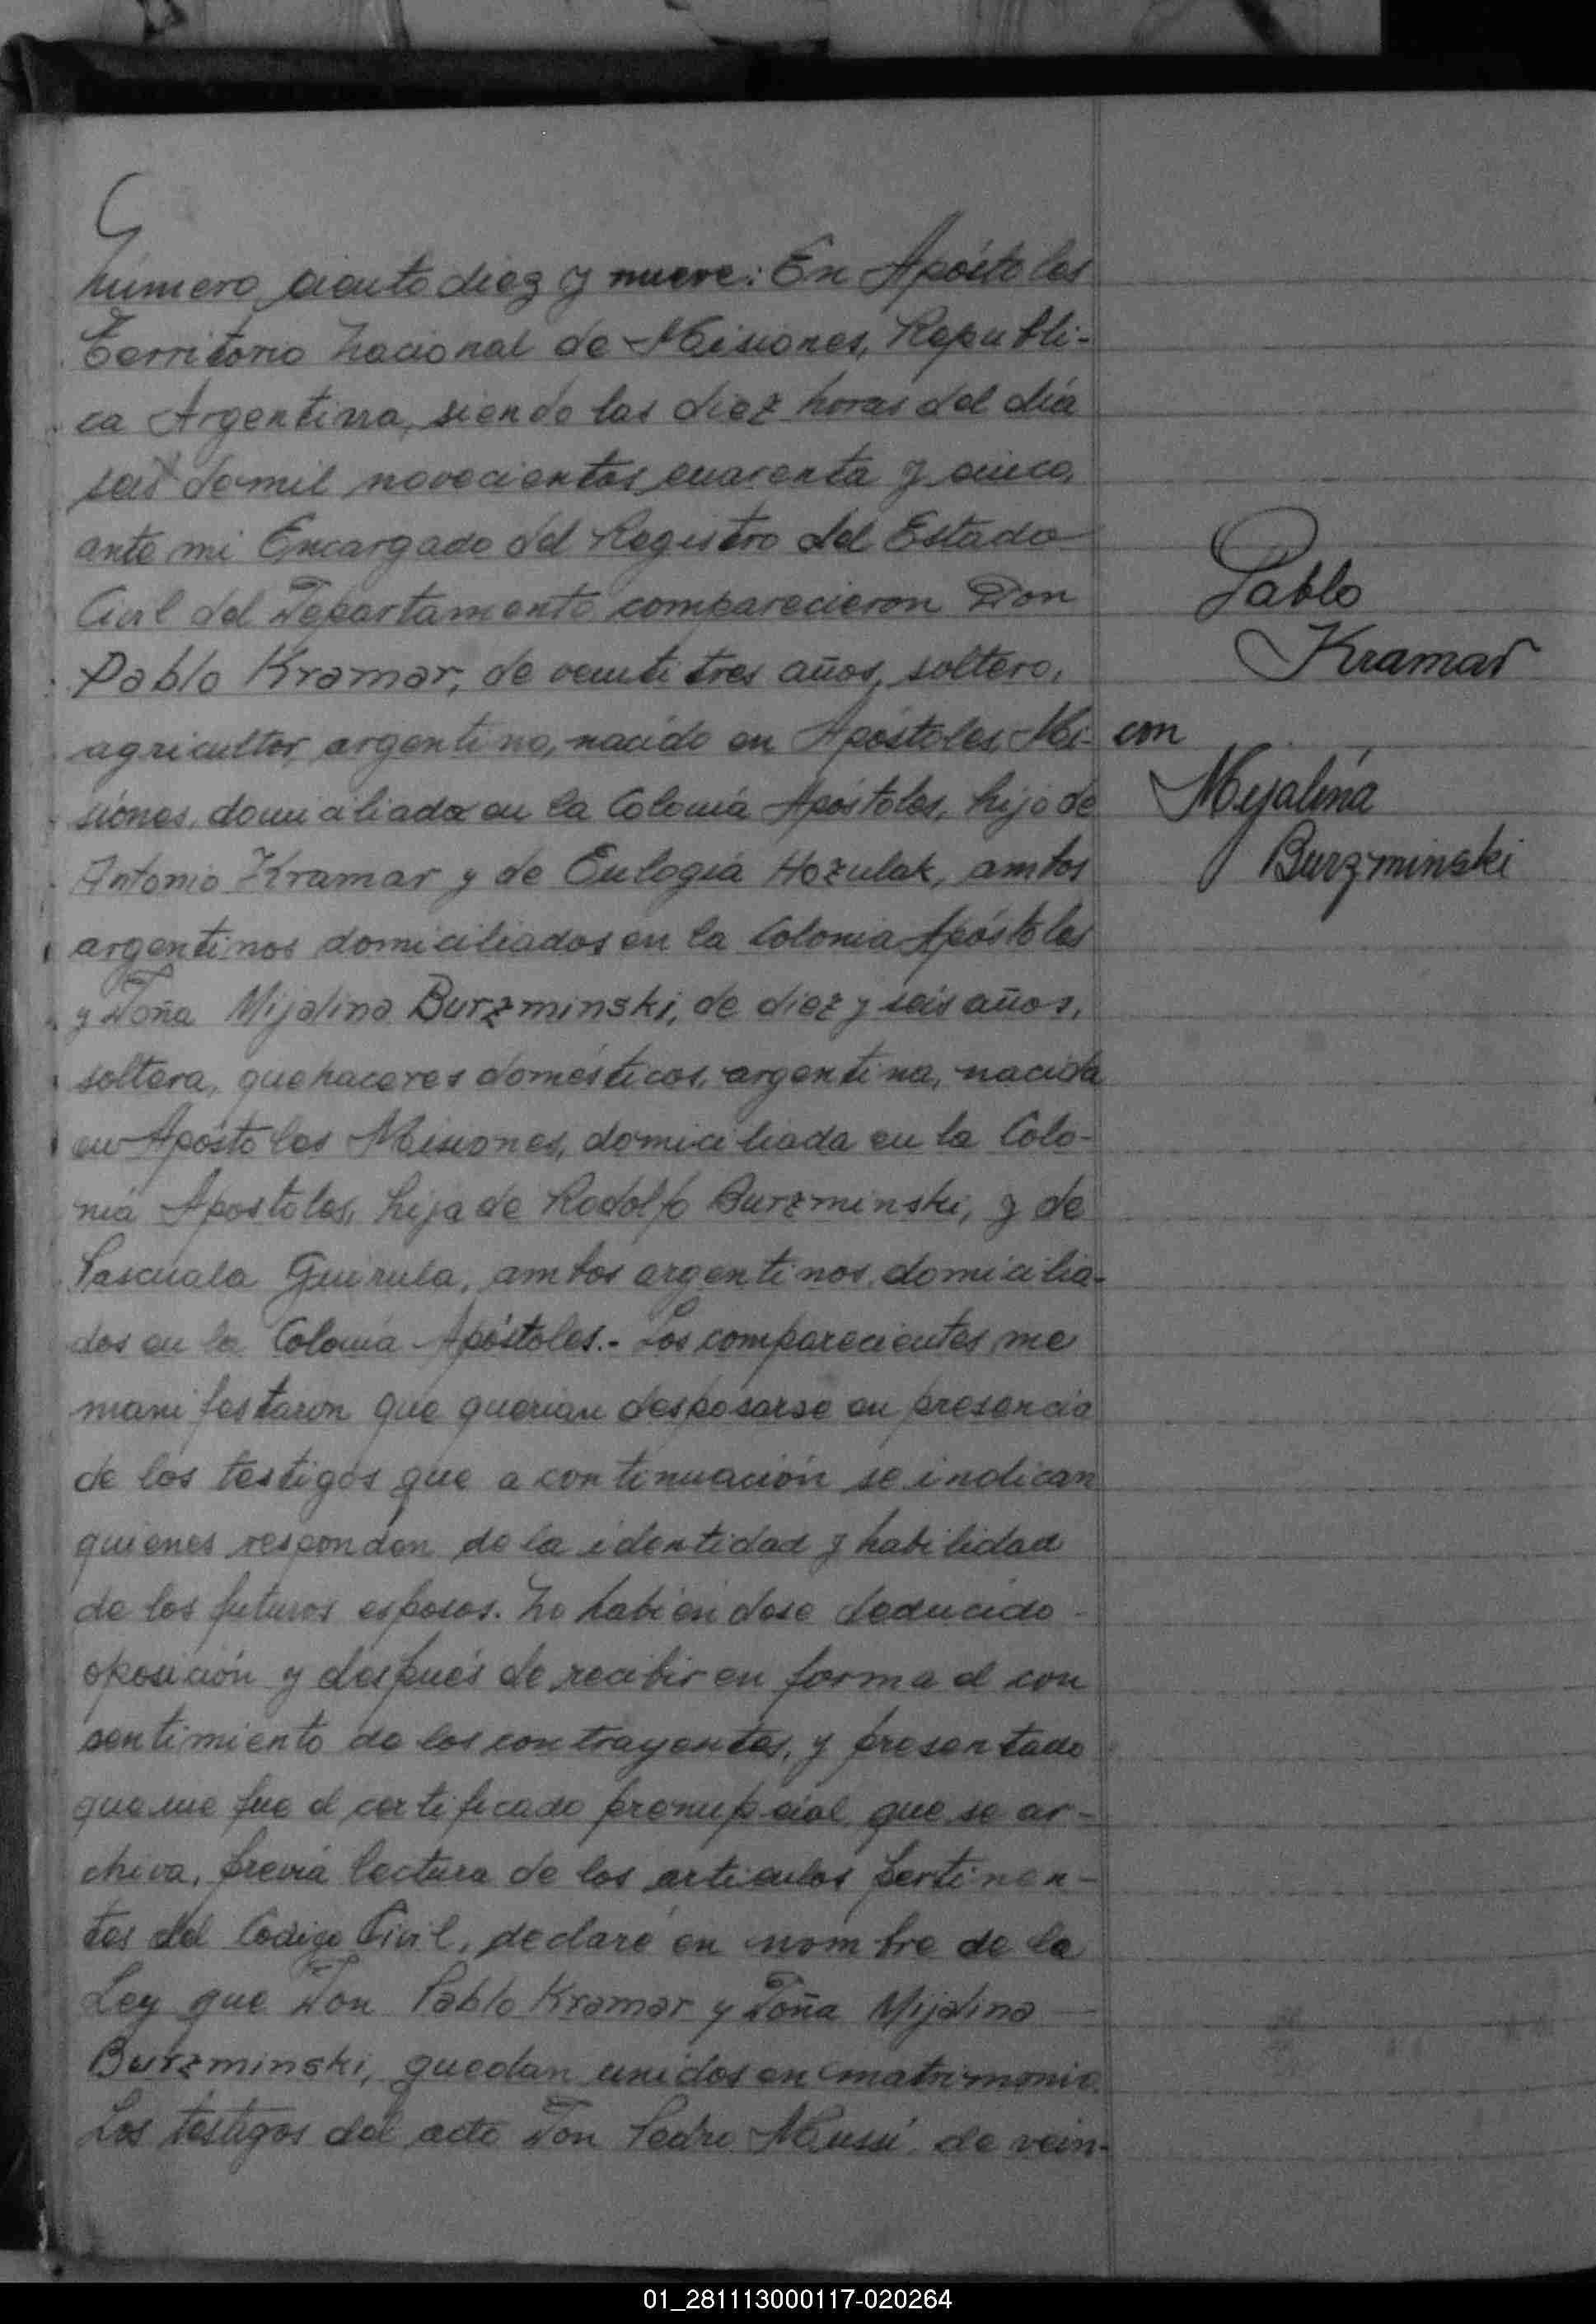 Número ciento diez y nueve: En Apóstoles
Territorio Nacional de Misiones, Republi-
ca Argentina, siendo las diez horas del día
seis de mil novecientos cuarenta y cinco,
ante mi Encargado del Registro del Estado
Civil del Departamento comparecieron Don
Pablo Kramar, de veinti tres años, soltero,
agricultor, argentino, nacido en Apóstoles, Mi-
siones, domiciliado en la Colonia Apóstoles, hijo de
Antonio Kramar y de Eulogia Hozulak, ambos
argentinos domiciliados en la Colonia Apóstoles
y Doña Mijalina Burzminski, de diez y seis años,
soltera, quehaceres domésticos, argentina, nacida
en Apóstoles Misiones, domiciliada en la Colo-
nia Apostoles, hija de Rodolfo Burzminski, y de
Pascuala Guirula, ambos argentinos, domicilia-
dos en la Colonia Apóstoles.- Los comparecientes me
manifestaron que querian desposarse en presencia
de los testigos que a continuación se indican
quienes responden de la identidad y habilidad
de los futuros esposos. No habiéndose deducido
oposición y después de recibir en forma el con
sentimiento de los contrayentes, y presentado
que me fue el certificado prenupcial que se ar-
chiva, previa lectura de los articulos pertinen-
tes del Codigo Civil, declaré en nombre de la
Ley que Don Pablo Kramar y Doña Mijalina
Burzminski, quedan unidos en matrimonio.
Los testigos del acto Don Pedro Mussi, de vein-
Pablo
Kramar
con
Mijalina
Burzminski
01_281113000117-020264